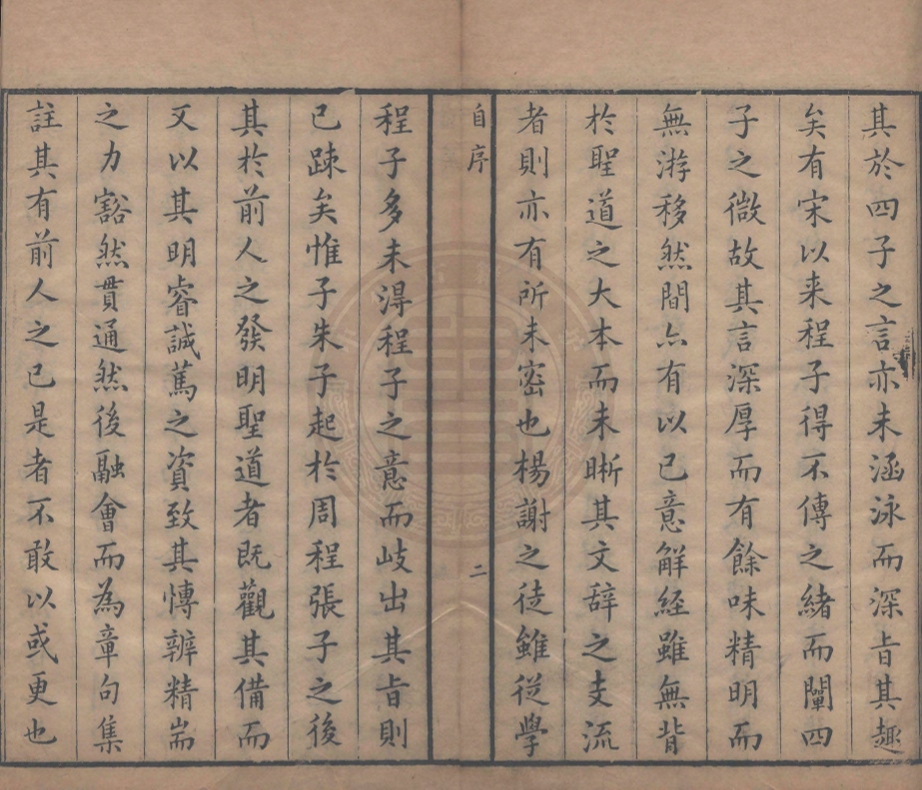 其於四子之言亦未涵泳而深旨其趣
矣有宋以来程子得不傳之緒而闡四
子之微故其言深厚而有餘味精明而
無游移然間亦有以已意解経雖無背
於聖道之大本而未晣其文辞之支流
者則亦有所未密也楊謝之徒雖従學
自序
二
程子多未淂程子之意而歧出其旨則
已踈矣惟子朱子起於周程張子之後
其於前人之發明聖道者既觀其備而
又以其明睿誠篤之資致其慱辨精耑
之力豁然貫通然後融會而為章句集
註其有前人之已是者不敢以或更也